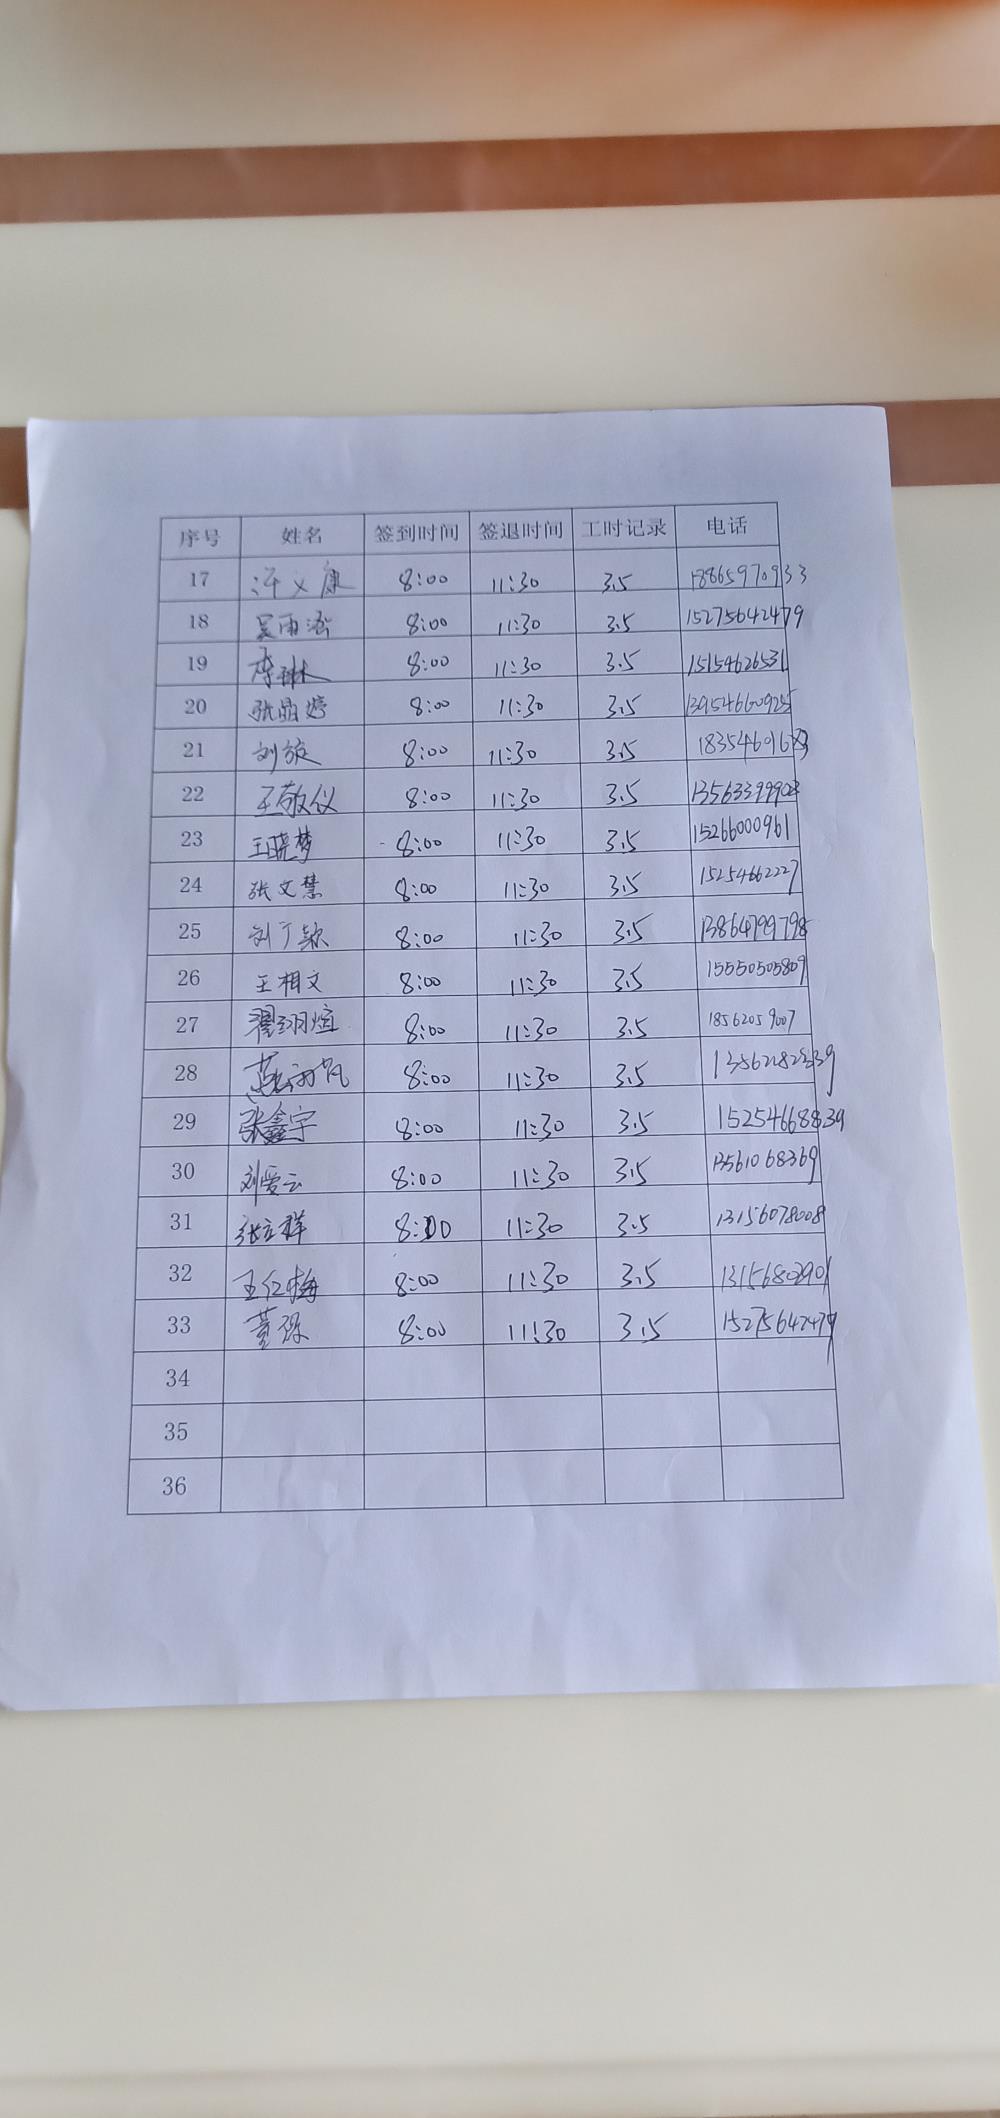 序号 姓名 签到时间 签退时间 工时记录 电话
17 汪义康 8:00 11:30 3.5 18865970933
18 吴雨涵 8:00 11:30 3.5 15275642479
19 李琳 8:00 11:30 3.5 15154626531
20 张晶婷 8:00 11:30 3.5 13954660925
21 刘旋 8:00 11:30 3.5
22 王敬仪 8:00 11:30 3.5 13563399903
23 王晓梦 8:00 11:30 3.5 15266000961
24 张文慧 8:00 11:30 3.5 15254662227
25 刘丁颖 8:00 11:30 3.5 13864799798
26 王相文 8:00 11:30 3.5 15550505809
27 翟翊煊 8:00 11:30 3.5 18562059007
28 8:00 11:30 3.5
29 张鑫宇 8:00 11:30 3.5 15254668839
30 刘爱云 8:00 11:30 3.5 13561068369
31 张立群 8:00 11:30 3.5 13156078008
32 王红梅 8:00 11:30 3.5 13156802901
33 8:00 11:30 3.5 15275642479
34
35
36